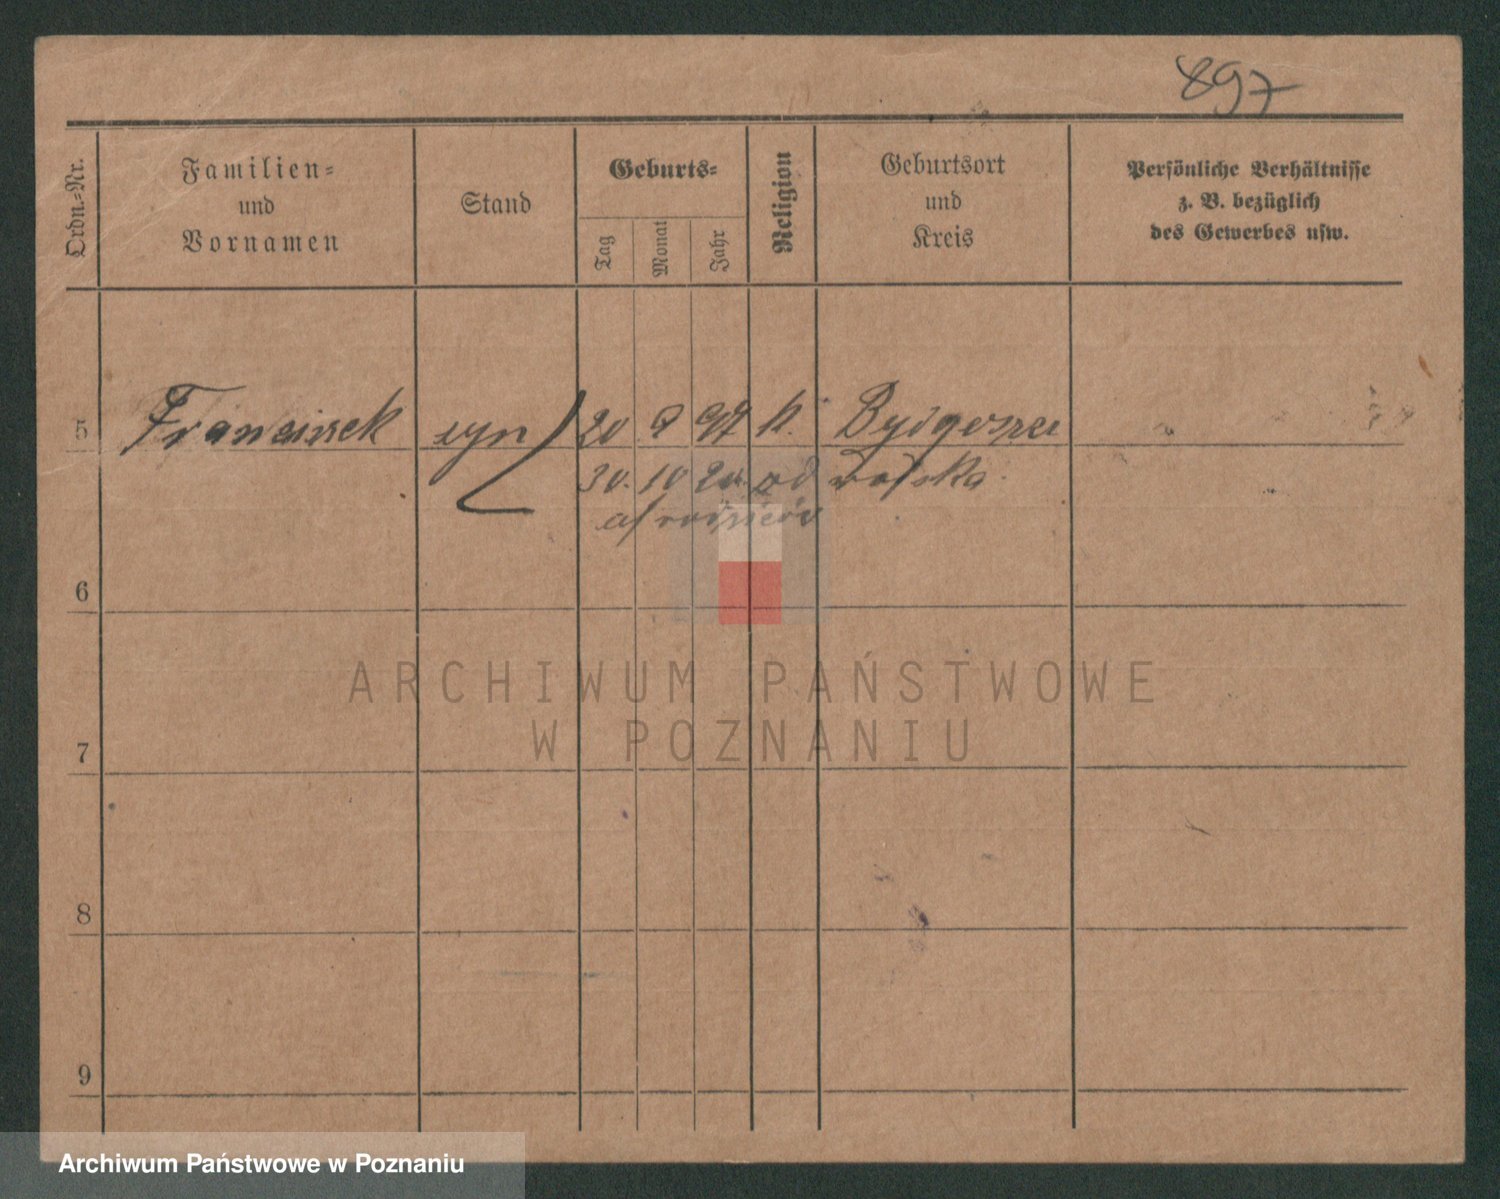 897
Ordn.-Nr.
Familien-
und
Vornamen
Stand
Geburts-
Tag
Monat
Jahr
Religion
Geburtsort
und
Kreis
Persönliche Verhältnisse
z. B. bezüglich
des Gewerbes usw.
5 Franciszek syn 20 9 97 k. Bydgoszcz
30. 10 20. od wojska
6
ARCHIWUM PAŃSTWOWE
W POZNANIU
7
8
9
Archiwum Państwowe w Poznaniu